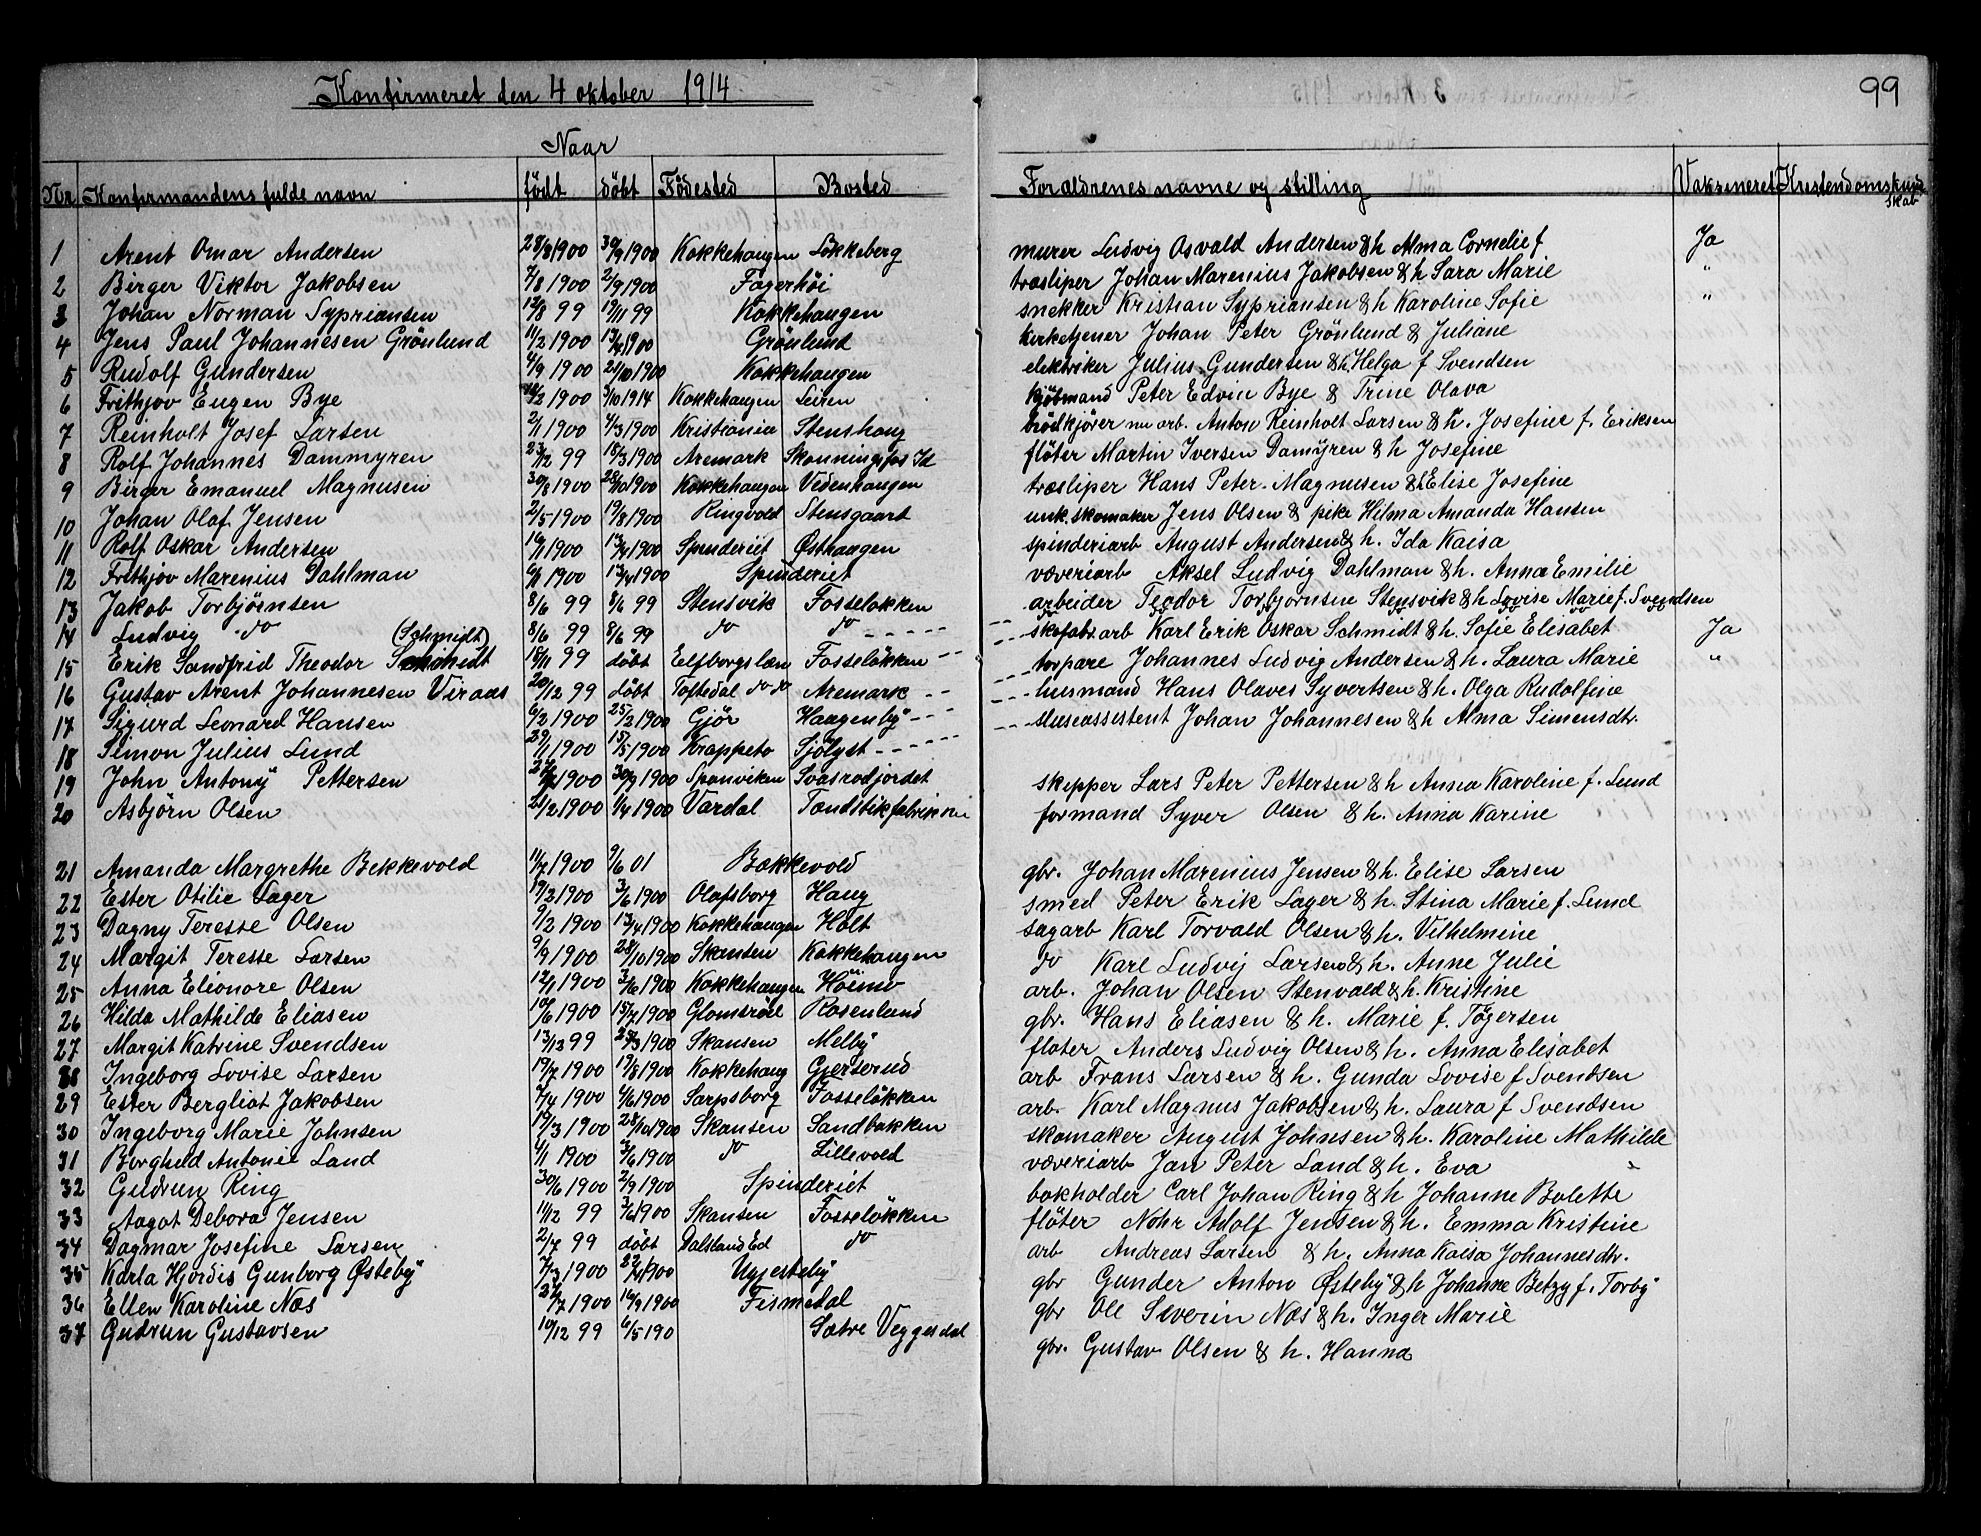 Konfirmeret den 4 oktober 1914
99
Naar
Nr. Konfirmandens fulde navn født döbt Födested Bosted Forældrenes navne og stilling Vaksineret Kristendomskund
skab
1 Arent Omar Andersen 28/8 1900 30/9 1900 Kokkehaugen Løkkeberg murer Ludvig Osvald Andersen & h Alma Cornelie f Ja
2 Birger Viktor Jakobsen 7/8 1900 2/9 1900 Fagerhöi træsliper Johan Marenius Jakobsen & h Sara Marie "
3 Johan Norman Sypriansen 12/8 99 19/11 99 Kokkehaugen snekker Kristian Sypriansen & h Karoline Sofie "
4 Jens Paul Johannesen Grönlund 11/2 1900 13/4 1900 Grönlund kirketjener Johan Peter Grönlund & Juliane
5 Rudolf Gundersen 4/9 1900 21/10 1900 Kokkehaugen elektriker Julius Gundersen & h. Helga f Svendsen
6 Frithjov Eugen Bye 1900 3/10 1914 Kokkehaugen Leiren kjöbmand Peter Edvin Bye & Trine Olava
7 Reinholt Josef Larsen 2/1 1900 4/3 1900 Kristiania Stenshaug brödkjører nu arb. Anton Reinholt Larsen & h. Josefine f. Eriksen
8 Rolf Johannes Dammyren 23/12 99 18/3 1900 Aremark Skonningsfos Id flöter Martin Iversen Damyren & h Josefine
9 Birger Emanuel Magnusen 30/8 1900 28/10 1900 Kokkehaugen Vedenhaugen træsliper Hans Peter Magnusen & h Elise Josefine
10 Johan Olaf Jensen 2/5 1900 19/8 1900 Ringvold Stensgaard unk. skomaker Jens Olsen & pike Hilma Amanda Hansen
11 Rolf Oskar Andersen 16/1 1900 13/4 1900 Spinderiet Østhaugen spinderiarb August Andersen & h. Ida Kaisa
12 Frithjov Marenius Dahlman 6/1 1900 13/4 1900 Spinderiet væveriarb Aksel Ludvig Dahlman & h. Anna Emilie
13 Jakob Torbjörnsen 8/6 99 8/6 99 Stensvik Fosseløkken arbeider Teodor Torbjornsen Stensvik & h Lovise Marie f. Svendsen
14 Ludvig do 8/6 99 8/6 99 do do do do do do do
15 Erik Sandfrid Theodor Schmidt (Schmidt) 18/11 99 döbt Elfborgslæn Fosseløkken skofabr arb Karl Erik Oskar Schmidt & h. Sofie Elisabet Ja
16 Gustav Arent Johannesen Viraas 20/12 99 döbt Töftedal do do Aremark torpare Johannes Ludvig Andersen & h. Laura Marie "
17 Sigurd Leonard Hansen 6/2 1900 25/2 1900 Gjör Haagenby husmand Hans Olaves Syvertsen & h. Olga Rudolfine
18 Simon Julius Lund 29/1 1900 15/5 1900 Krappeto Sjölyst sluseassistent Johan Johannesen & h Alma Simensdtr.
19 John Antony Pettersen 1900 30/9 1900 Spanviken Svasrodjordet skipper Lars Peter Pettersen & h Anna Karoline f. Lund
20 Asbjörn Olsen 21/2 1900 1/4 1900 Vardal Tændstikfabrikken formand Syver Olsen & h. Anna Karine
21 Amanda Margrethe Bekkevold 11/7 1900 9/6 01 Bækkevold gbr. Johan Marenius Jensen & h. Elise Larsen
22 Ester Otilie Lager 19/2 1900 3/6 1900 Olafsborg Haug smed Peter Erik Lager & h. Stina Marie f. Lund
23 Dagny Teresse Olsen 9/2 1900 13/4 1900 Kokkehaugen Holt sagarb Karl Torvald Olsen & h. Vilhelmine
24 Margit Teresse Larsen 9/9 1900 28/10 1900 Skansen Kokkehaugen do Karl Ludvig Larsen & h. Anne Julie
25 Anna Elionore Olsen 12/1 1900 3/6 1900 Kokkehaugen Höimo arb. Johan Olsen Stenvald & h. Kristine
26 Hilda Mathilde Eliasen 10/6 1900 15/7 1900 Glomsröd Rosenlund gbr. Hans Eliasen & h. Marie f. Tögersen
27 Margit Katrine Svendsen 13/12 99 25/3 1900 Skansen Melby fløter Anders Ludvig Olsen & h. Anna Elisabet
28 Ingeborg Lovise Larsen 19/7 1900 19/8 1900 Kokkehaug Gjerserud arb Frans Larsen & h. Gunda Lovise f Svendsen
29 Ester Bergliot Jakobsen 7/4 1900 4/6 1900 Sarpsborg Fosseløkken arb. Karl Magnus Jakobsen & h. Laura f Svendsen
30 Ingeborg Marie Johnsen 19/3 1900 28/10 1900 Skansen Sandbakken skomaker August Johnsen & h. Karoline Mathilde
31 Borghild Antonie Land 4/1 1900 3/6 1900 do Lillevold væveriarb Jan Peter Land & h. Eva
32 Gudrun Ring 30/6 1900 2/9 1900 Spinderiet bokholder Carl Johan Ring & h Johanne Bolette
33 Aagot Debora Jensen 11/12 99 3/6 1900 Skansen Fosseløkken flöter Nohr Adolf Jensen & h. Emma Kristine
34 Dagmar Josefine Larsen 2/7 99 döbt Dalsland Ed do arb Andreas Larsen & h. Anna Kaisa Johannesdtr.
35 Karla Hjördis Gunborg Østeby 7/3 1900 22/4 1900 Ugjesteby gbr Gunder Anton Østeby & h Johanne Betzy f. Torby
36 Ellen Karoline Næs 1900 16/9 1900 Fismedal gbr Ole Severin Næs & h. Inger Marie
37 Gudrun Gustavsen 10/12 99 6/5 190 Sætre Veggesdal gbr. Gustav Olsen & h. Hanna